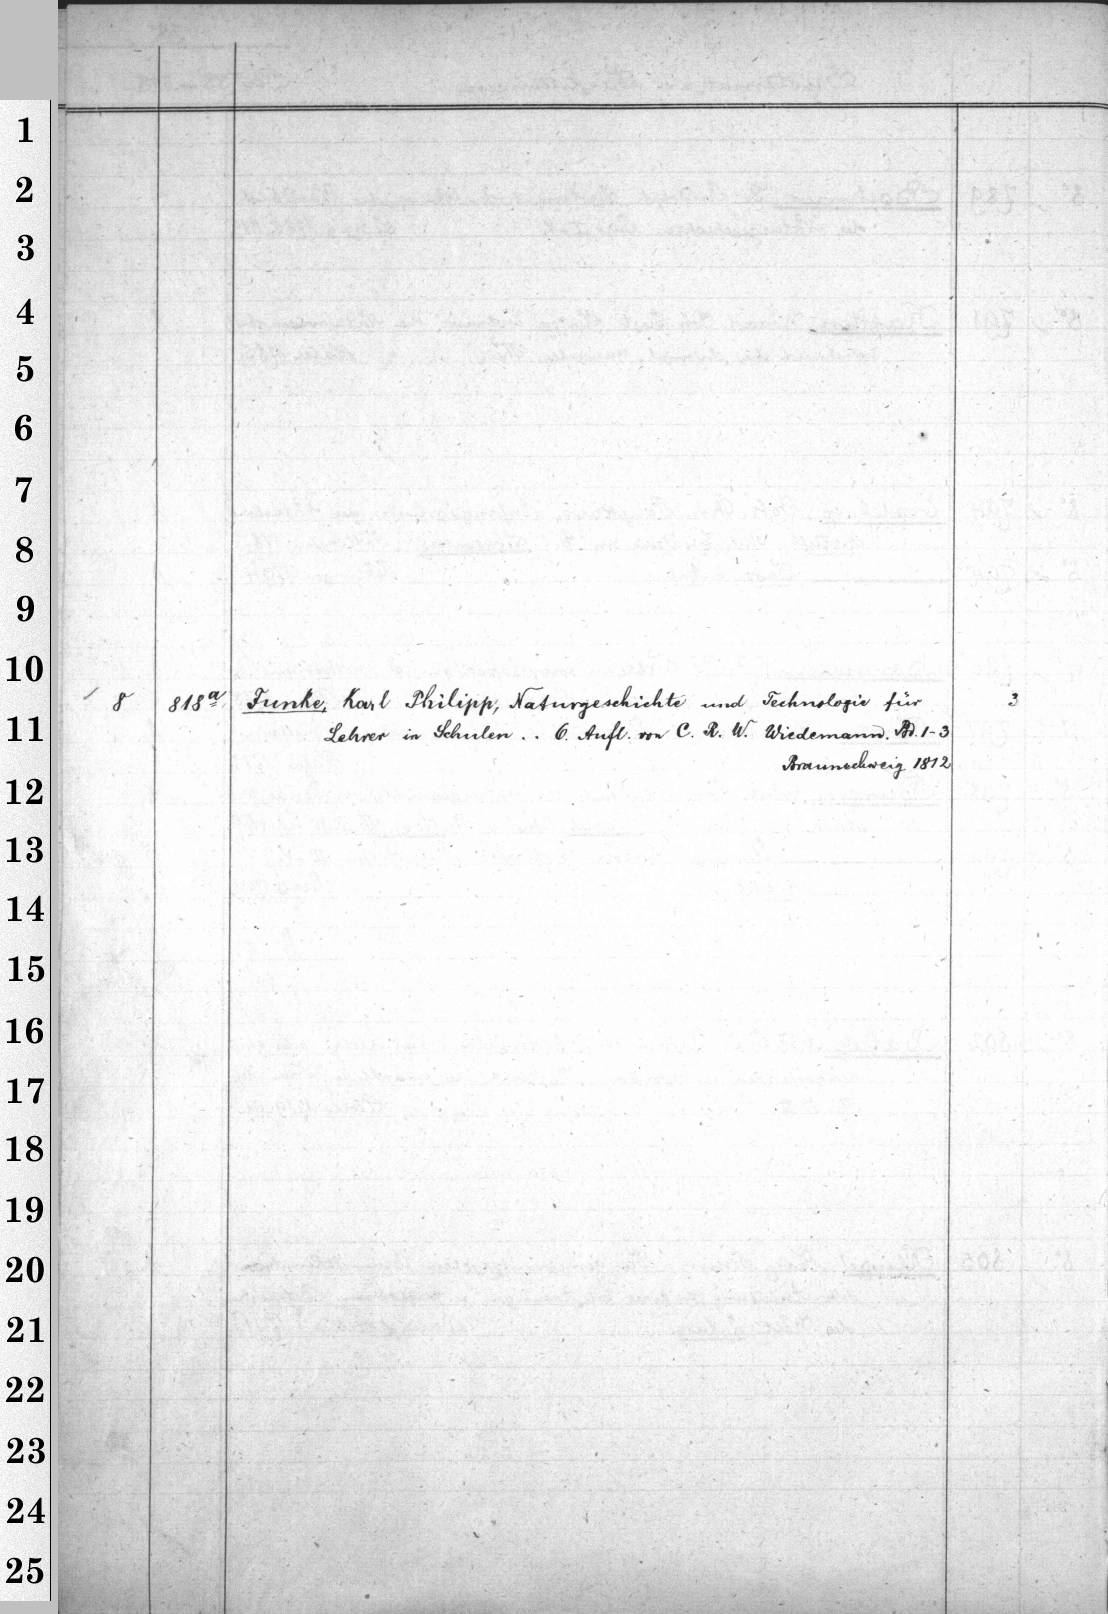 1
2
3
4
5
6
7
8
9
10
8 818a Funke, Karl Philipp, Naturgeschichte und Technologie für 3
11
Lehrer in Schulen . . 6. Aufl. von C. R. W. Wiedemann. Bd. 1-3
Braunschweig 1812
12
13
14
15
16
17
18
19
20
21
22
23
24
25